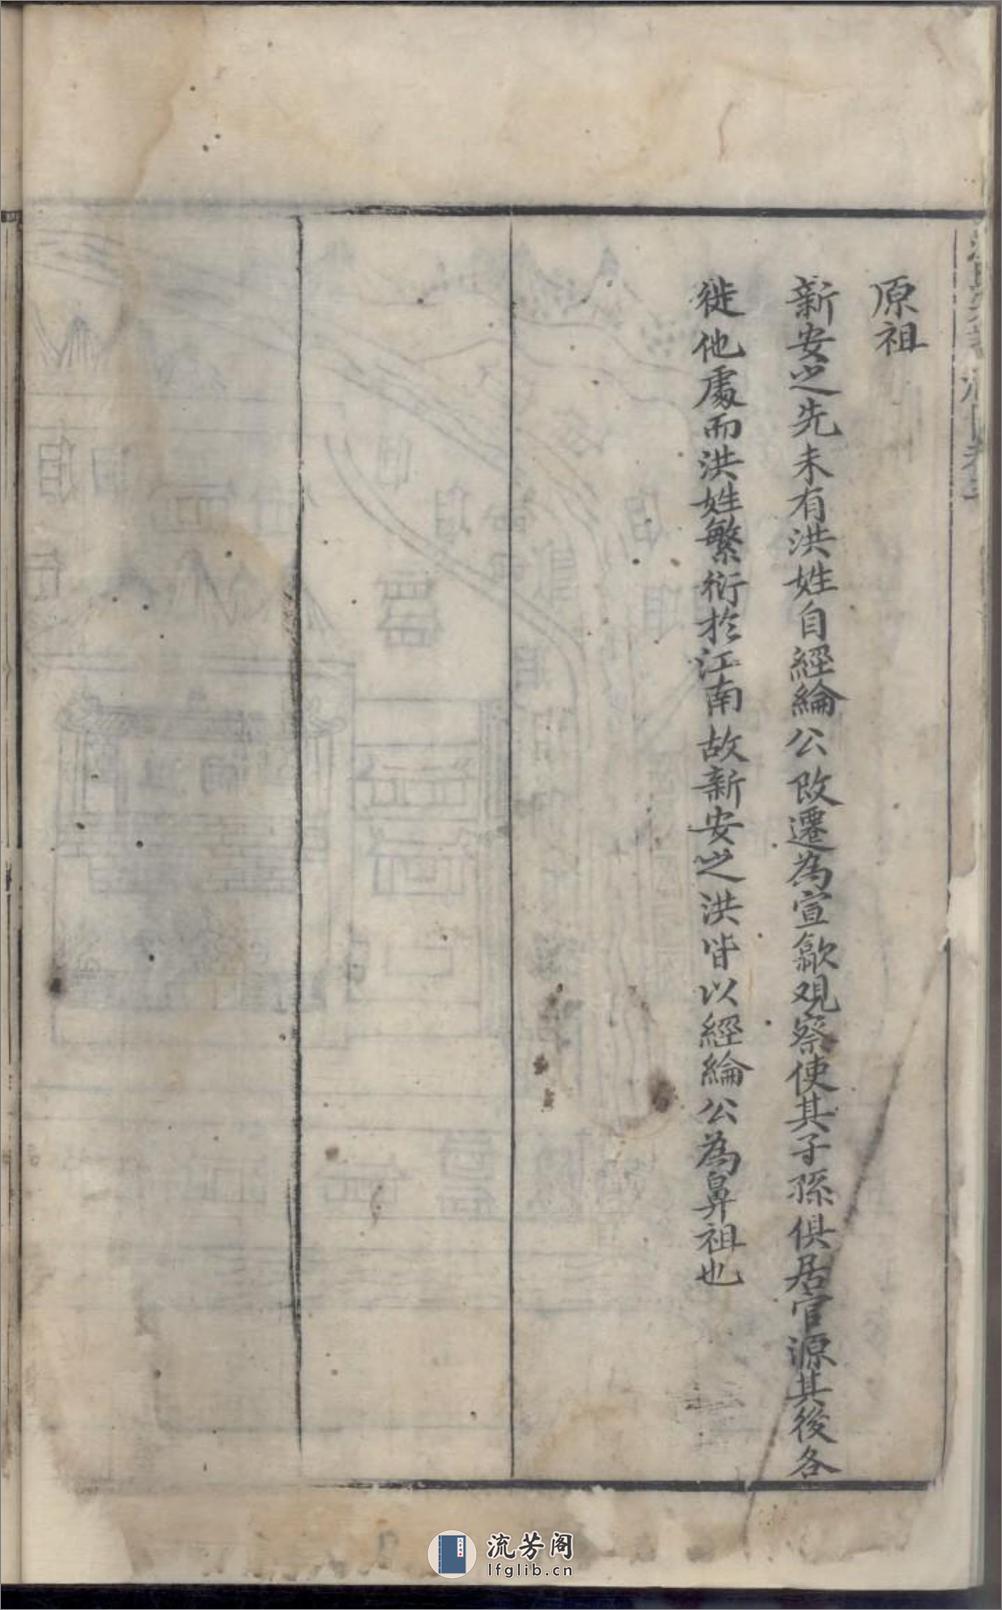 原祖
新安之先未有洪姓自經綸公改遷為宣歙观察使其子孫俱居官源其後各
徙他處而洪姓繁衍於江南故新安之洪皆以經綸公為鼻祖也
流芳阁
lfglib.cn